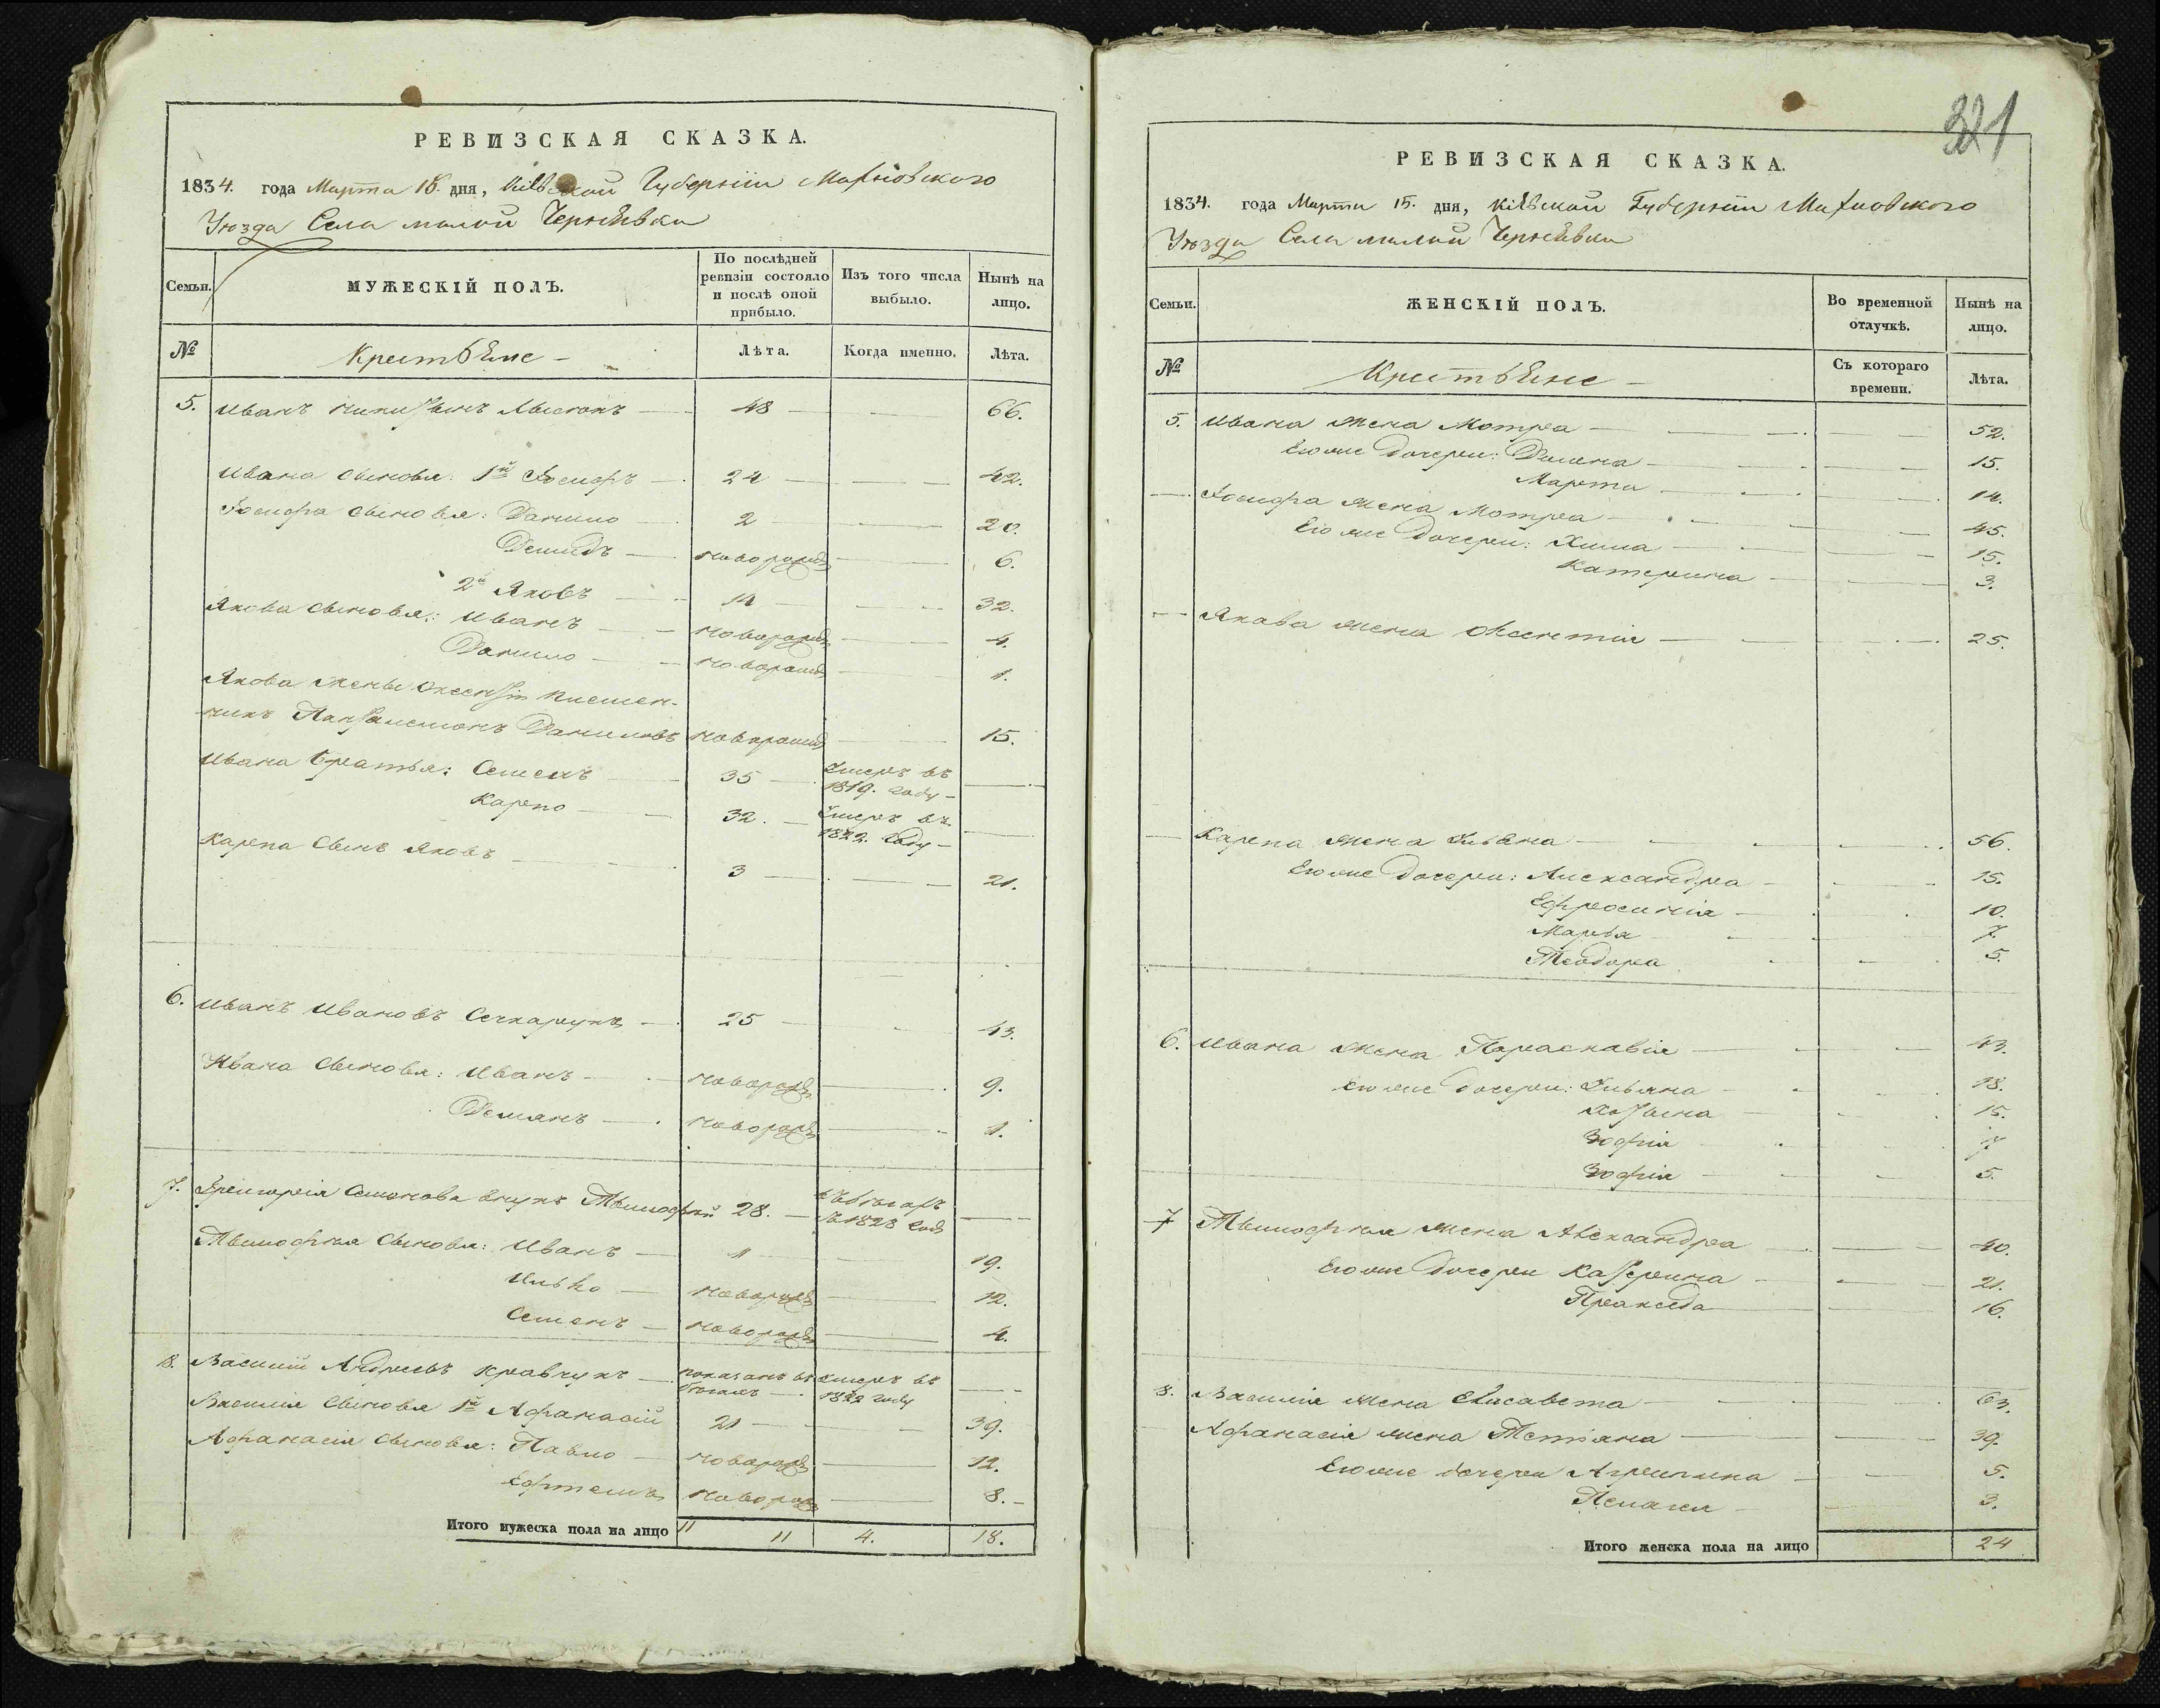 РЕВИЗСКАЯ СКАЗКА.
1834. года Марта 15. дня, Кіевской Губерніи Махновскаго
Уѣзда Села малой Чернявки
Семьи.
МУЖЕСКІЙ ПОЛЪ.
По послѣдней ревизіи состояло и послѣ оной прибыло.
Изъ того числа выбыло.
Нынѣ на лицо.
№
Крестьяне
Лѣта.
Когда именно.
Лѣта.
5. Иванъ 48 66.
Ивана сыновья: 1й Іосифъ 24 42.
Іосифа сыновья: Данило 2 20.
Демидъ новорожд 6.
2й Яковъ 14 32.
Якова сыновья: Иванъ новорожд 4.
Данило новорожд 1.
Якова жены Оксентіи пасын-
никъ Даниловъ новорожд 15.
Ивана братья: Семенъ 35 умеръ въ 1819. году
Карпо 32. умеръ въ 1822. году
Карпа сынъ Яковъ 3 21.
6. Иванъ Ивановъ Сечкарукъ 25 43.
Ивана сыновья: Иванъ новорожд 9.
Демянъ новорожд 1.
7. Григорія Семенова внукъ Тымофѣй 28. 1828 году
Тымофѣя сыновья: Иванъ 1 19.
Илько новорожд 12.
Семенъ новорожд 4.
8. Василій Андреевъ Кравчукъ показанъ въ умеръ въ 1822 году
Василія сыновья 1й Афанасій 21 39.
Афанасія сыновья: Павло новорожд 12.
Ефтемъ новорожд 8.
Итого мужеска пола на лицо 11 11 4. 18.
321
РЕВИЗСКАЯ СКАЗКА.
1834. года Марта 15. дня, Кіевской Губерніи Махновскаго
Уѣзда Села малой Чернявки
Семьи.
ЖЕНСКІЙ ПОЛЪ.
Во временной отлучкѣ.
Нынѣ на лицо.
№
Крестьяне
Съ котораго времени.
Лѣта.
5. Ивана жена Мотра 52.
Его же дочери: Домена 15.
Марта 14.
Іосифа жена Мотра 45.
Его же дочери: Хима 15.
Катерина 3.
Якова жена Оксентія 25.
Карпа жена Ульяна 56.
Его же дочери: Александра 15.
Ефросинія 10.
Марья 7.
Теодора 5.
6. Ивана жена Параскавія 43.
Его же дочери: Ульяна 18.
15.
Зофія 7
Зофія 5.
7 Тымофѣя жена Александра 40.
Его же дочери Катерина 21.
Праксeда 16.
8. Василія жена Елисавета 63.
Афанасія жена Тетяна 39.
Его же дочери Агрепина 5.
Пелагея 3.
Итого женска пола на лицо 24